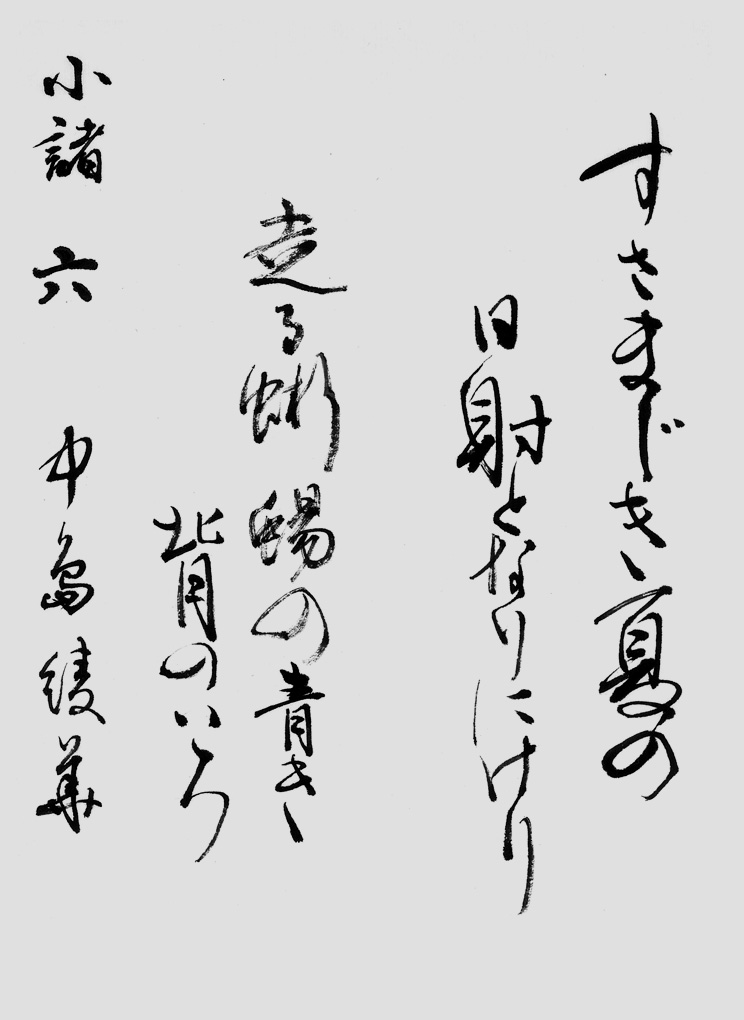 すさまじき夏の
日射となりにけり
走る蜥蜴の青き
背のいろ
小諸 六 中島綾華